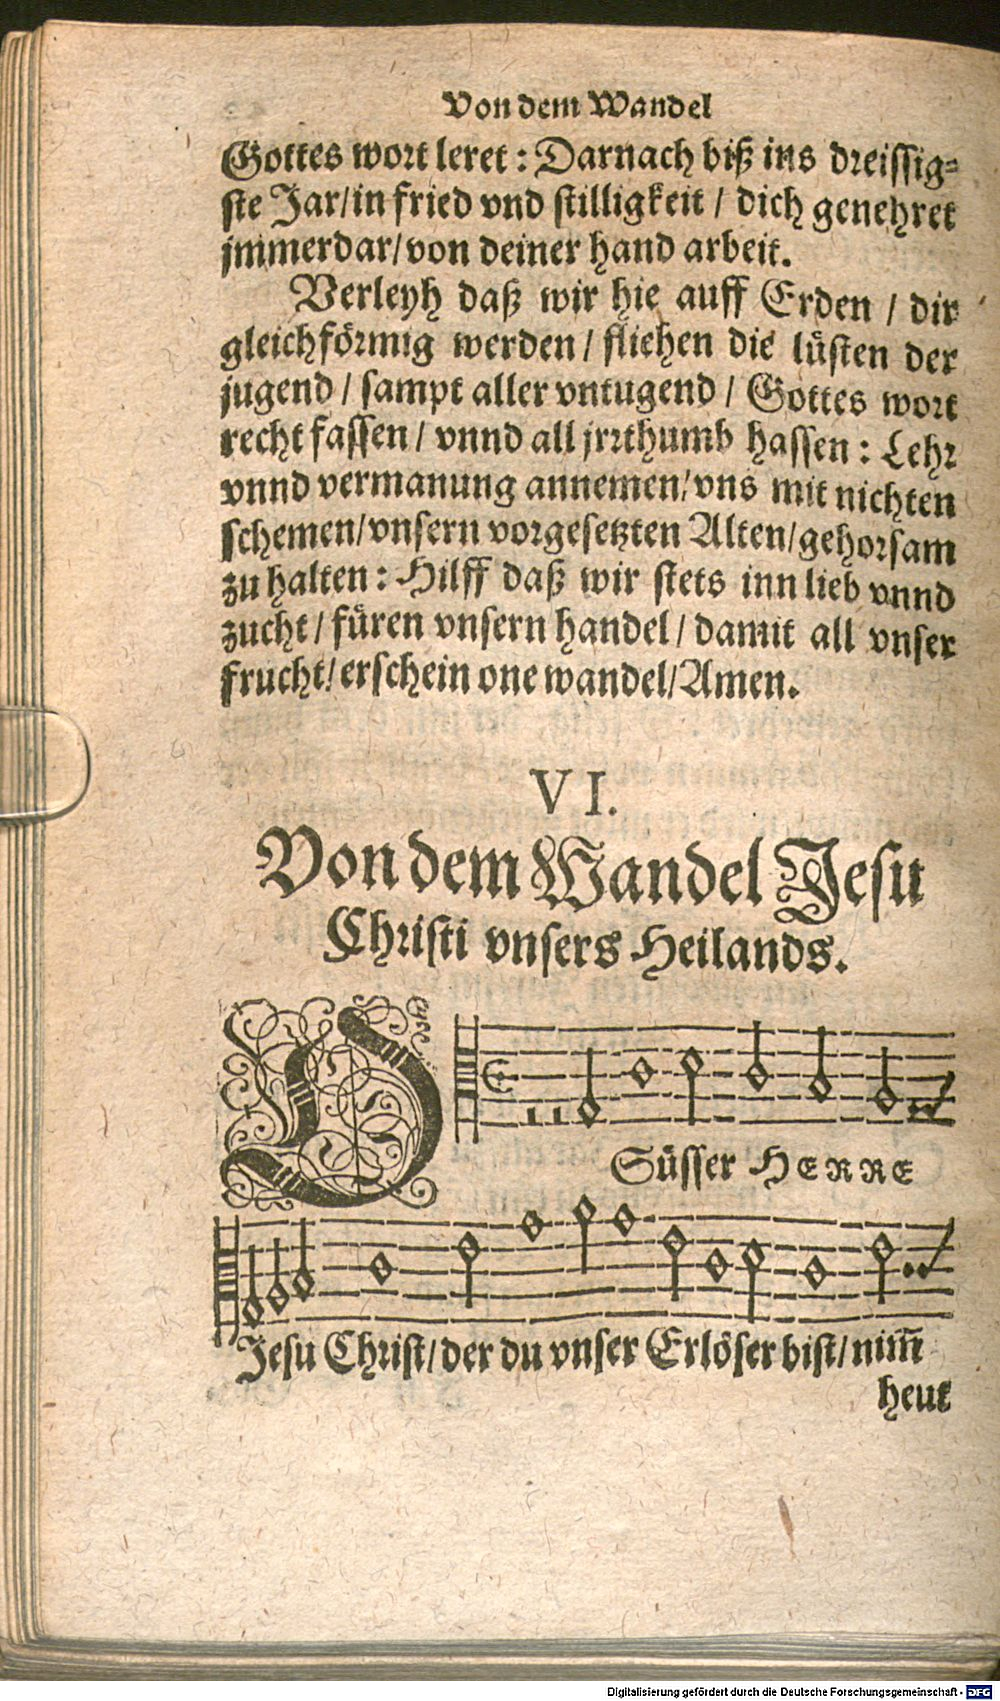 Von dem Wandel
Gottes wort leret: Darnach biß ins dreissig=
ste Jar/in fried vnd stilligkeit / dich genehret
jmmerdar/von deiner hand arbeit.
Verleyh daß wir hie auff Erden / dir
gleichfoͤrmig werden/ fliehen die luͤsten der
jugend / sampt aller vntugend / Gottes wort
recht fassen/ vnnd all jrrthumb hassen: Lehr
vnnd vermanung annemen/vns mit nichten
schemen/vnsern vorgesetzten Alten/gehorsam
zu halten: Hilff daß wir stets inn lieb vnnd
zucht/ fuͤren vnsern handel/ damit all vnser
frucht/erschein one wandel/Amen.
VI.
Von dem Wandel Jesu
Christi vnsers Heilands.
O
Suͤsser HERRE
Jesu Christ/der du vnser Erloͤser bist/nim̃
heut
Digitalisierung gefördert durch die Deutsche Forschungsgemeinschaft - DFG